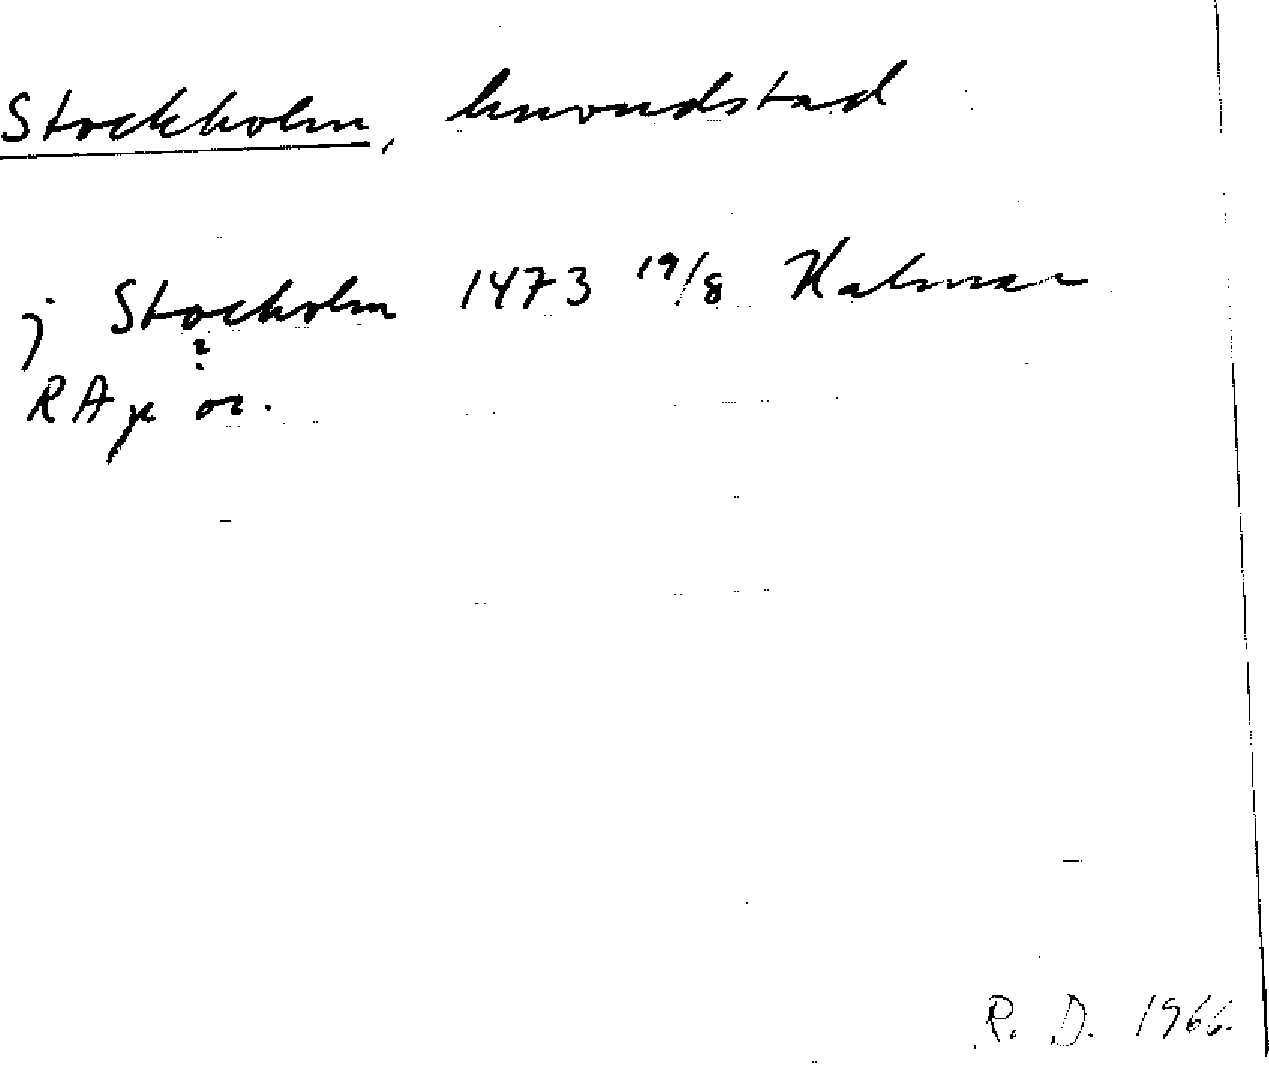 Stockholm, huvudstad
j Stockholm 1473 19/8 Kalmar
?
RAp or.
R. D. 1966.